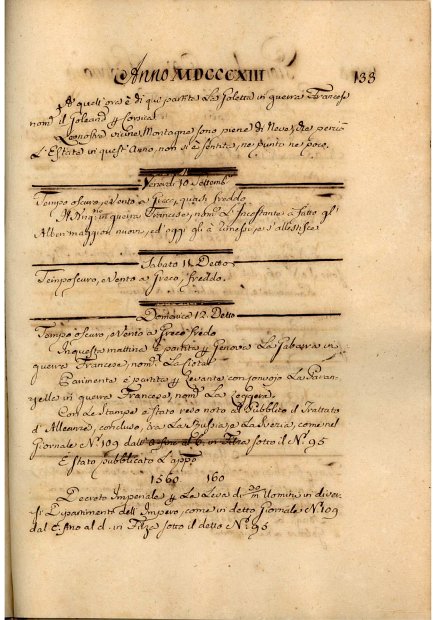 Anno MDCCCXIII 133
A' quest' ora è di qui partita La Goletta in guerra Francese
nom.
Le nostre vicine Montagne sono piene di Neve, di che perciò
L'Estate in quest' Anno, non si è sentita, ne punto ne poco.
Venerdì 10 Settemb.
Tempo oscuro, e Vento a Greco, quasi freddo
in guerra Francese, nom. L'Incostante à fatto gl'
Alberi maggiori nuovi, ed oggi gli à rimessi, e s'allestisce
Sabato 11 Detto
Temposcuro, e Vento a Greco, freddo.
Domenica 12 Detto
Tempo oscuro, e Vento a Greco fredo
In questa mattina è partita p Genova La Gabarra in
guerra Francese, nom. La Ciotat
Parimente è partita p Levante con convojo La
in guerra Francese, nom. La
Con Le Stampe è stato reso noto al Pubblico il Trattato
d'Alleanza, concluso, tra La Russia, e La come nel
Giornale N. 109 dal in Filza sotto il N. 95
E stato pubblicato L'app.
1560 160
Decreto Imperiale p La Leva di Uomini in diver-
si Dipartimenti dell'Impero, come in detto Giornale N. 109
dal in Filza sotto il detto N. 95